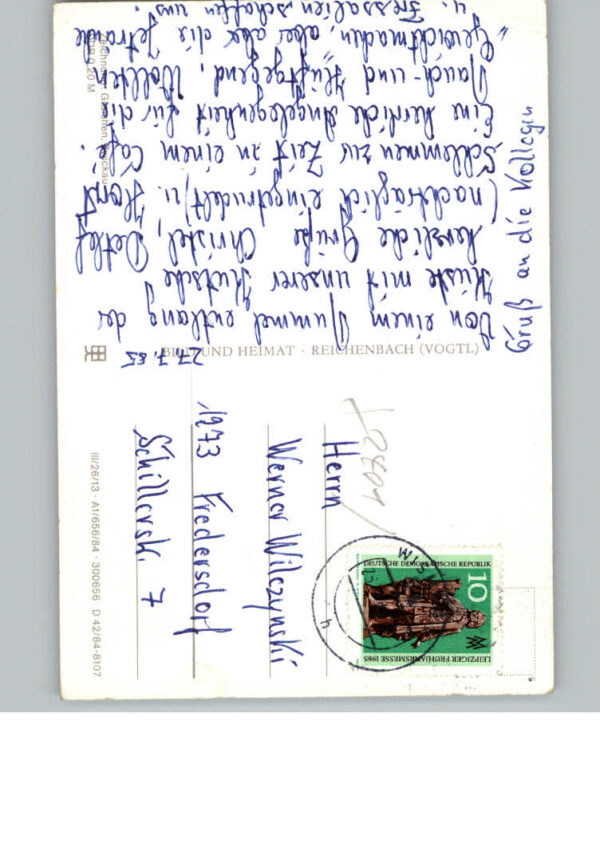 27.7.85
Von einem Bummel entlang der
Küste mit unserer Kutsche
herzliche Grüße Christel, Detlef
(nachträglich eingetrudelt) u. Horst
Schlemmen zur Zeit in einem Café.
Eine herrliche Angelegenheit für die
Bauch- und Hüftgegend. Wollten
"Gewichtmachen, aber die Getränke
u. Fressalien schaffen uns.
Gruß an die Kollegen
BILD UND HEIMAT · REICHENBACH (VOGTL)
Herrn
Werner Wilczynski
1273 Fredersdorf
Schillerstr. 7
III/26/13 · A1/656/84 · 300656 D 42/84-8107
DEUTSCHE DEMOKRATISCHE REPUBLIK
10
LEIPZIGER FRÜHJAHRSMESSE 1985